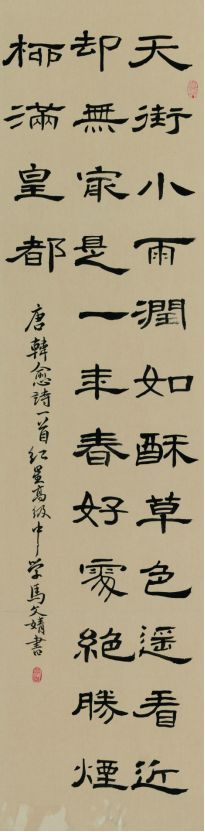 天街小雨潤如酥草色遥看近
却無最是一年春好處絕勝煙
柳滿皇都
唐韓愈詩一首紅星高级中学馬文婧書